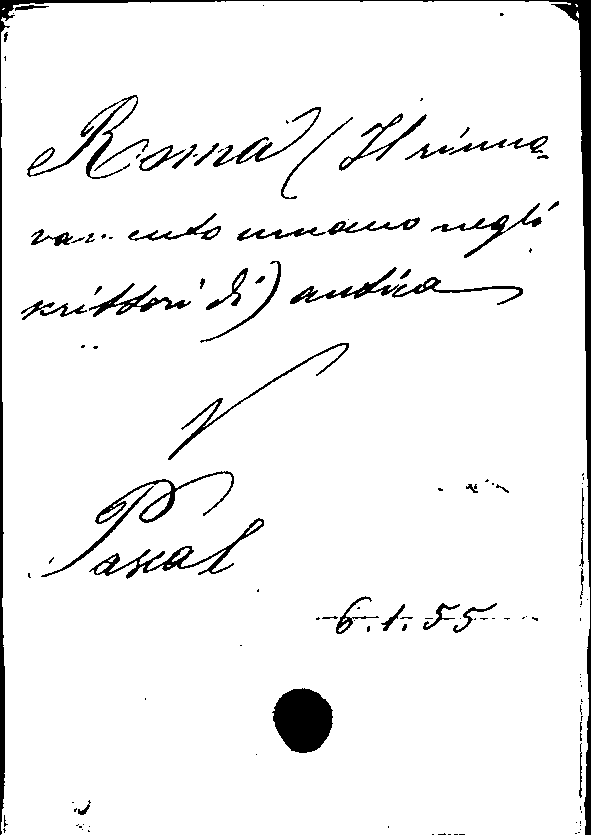 Roma (Il rinno-
vamento umano negli
scrittori di) antica
V
Pascal
6.1.55